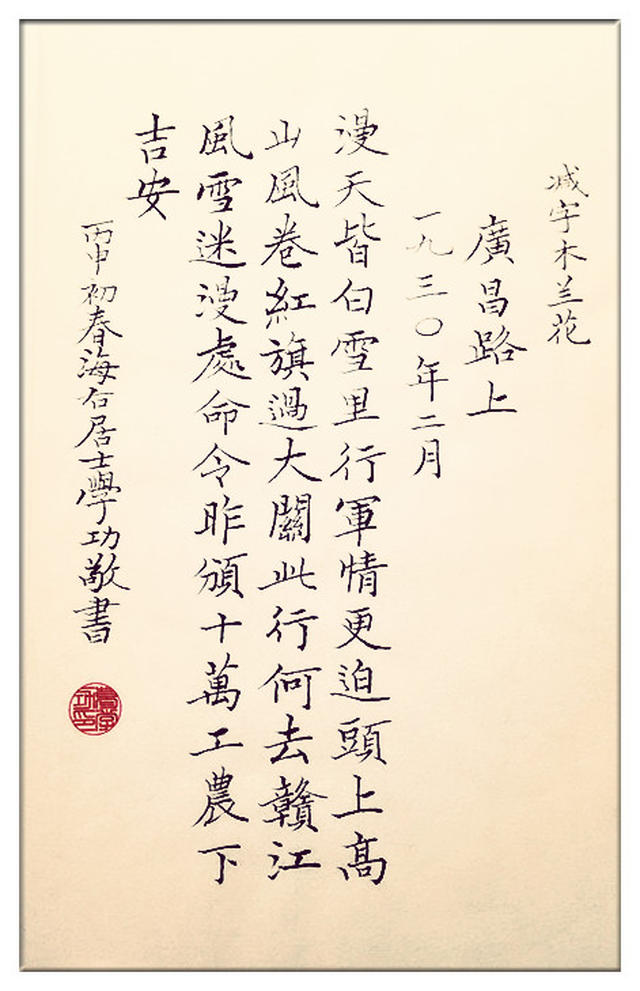 减字木兰花
廣昌路上
一九三〇年二月
漫天皆白雪里行軍情更迫頭上高
山風卷紅旗過大關此行何去贛江
風雪迷漫處命令昨頒十萬工農下
吉安
丙申初春海右居士學功敬書